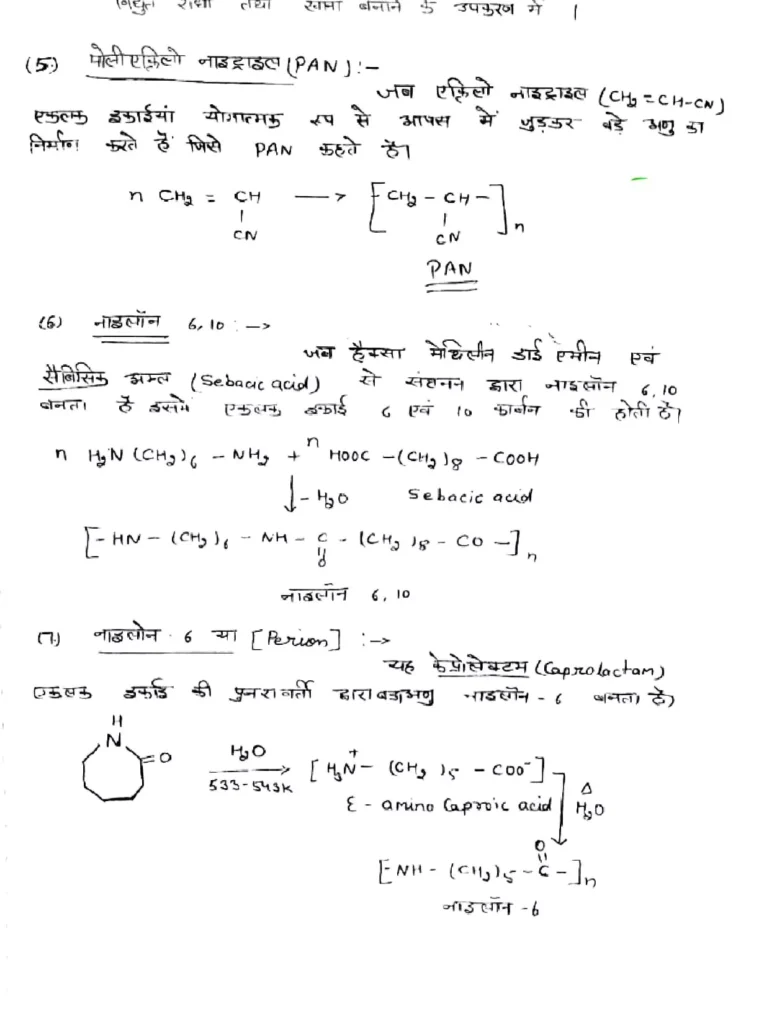 विद्युत रोधी तथा खंभा बनाने के उपकरण में ।
(5) पोलीएक्रिलो नाइट्राइल (PAN) :-
जब एक्रिलो नाइट्राइल (CH₂ = CH-CN)
एकलक इकाईयां योगात्मक रूप से आपस में जुड़कर बड़े अणु का
निर्माण करते हैं जिसे PAN कहते है।
n CH₂ = CH ⟶ [CH₂ - CH -]n
CN CN
PAN
(6) नाइलॉन 6, 10 : ->
जब हैक्सा मेथिलीन डाई एमीन एवं
सैबिसिक अम्ल (Sebacic acid) से संघनन द्वारा नाइलॉन 6, 10
बनता है इसमे एकलक इकाई 6 एवं 10 कार्बन की होती है।
n H₂N (CH₂)₆ - NH₂ + n HOOC - (CH₂)₈ - COOH
↓ - H₂O Sebacic acid
[- HN - (CH₂)₆ - NH - C - (CH₂)₈ - CO -]n
O
नाइलॉन 6, 10
(7) नाइलोन 6 या [Perion] : ->
यह केप्रोलेक्टम (Caprolactam)
एकलक इकाई की पुनरावर्ती द्वारा बड़ा अणु नाइलॉन - 6 बनता है)
H
N =O H₂O ⟶ 533-543K [H₃N⁺ - (CH₂)₅ - COO⁻]
ε - amino Caproic acid Δ H₂O
O
[NH - (CH₂)₅ - C -]n
नाइलॉन -6